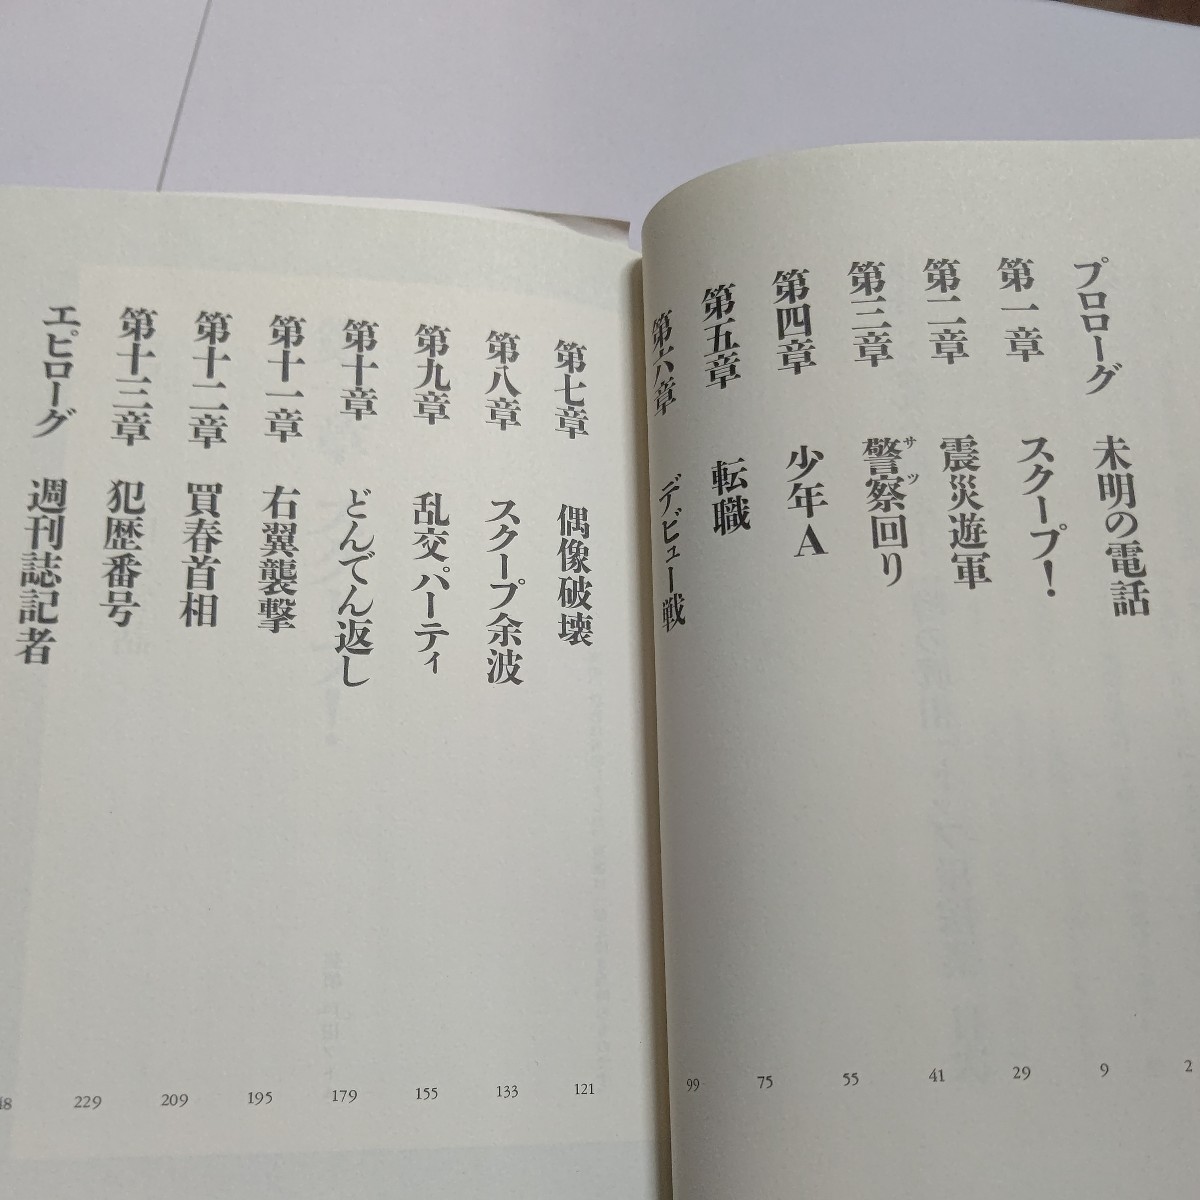 プロローグ 未明の電話 2
第一章 スクープ! 9
第二章 震災遊軍 29
第三章 警察回り 41
サツ
第四章 少年A 55
第五章 転職 75
第六章 デビュー戦 99
第七章 偶像破壊 121
第八章 スクープ余波 133
第九章 乱交パーティ 155
第十章 どんでん返し 179
第十一章 右翼襲撃 195
第十二章 買春首相 209
第十三章 犯歴番号 229
エピローグ 週刊誌記者